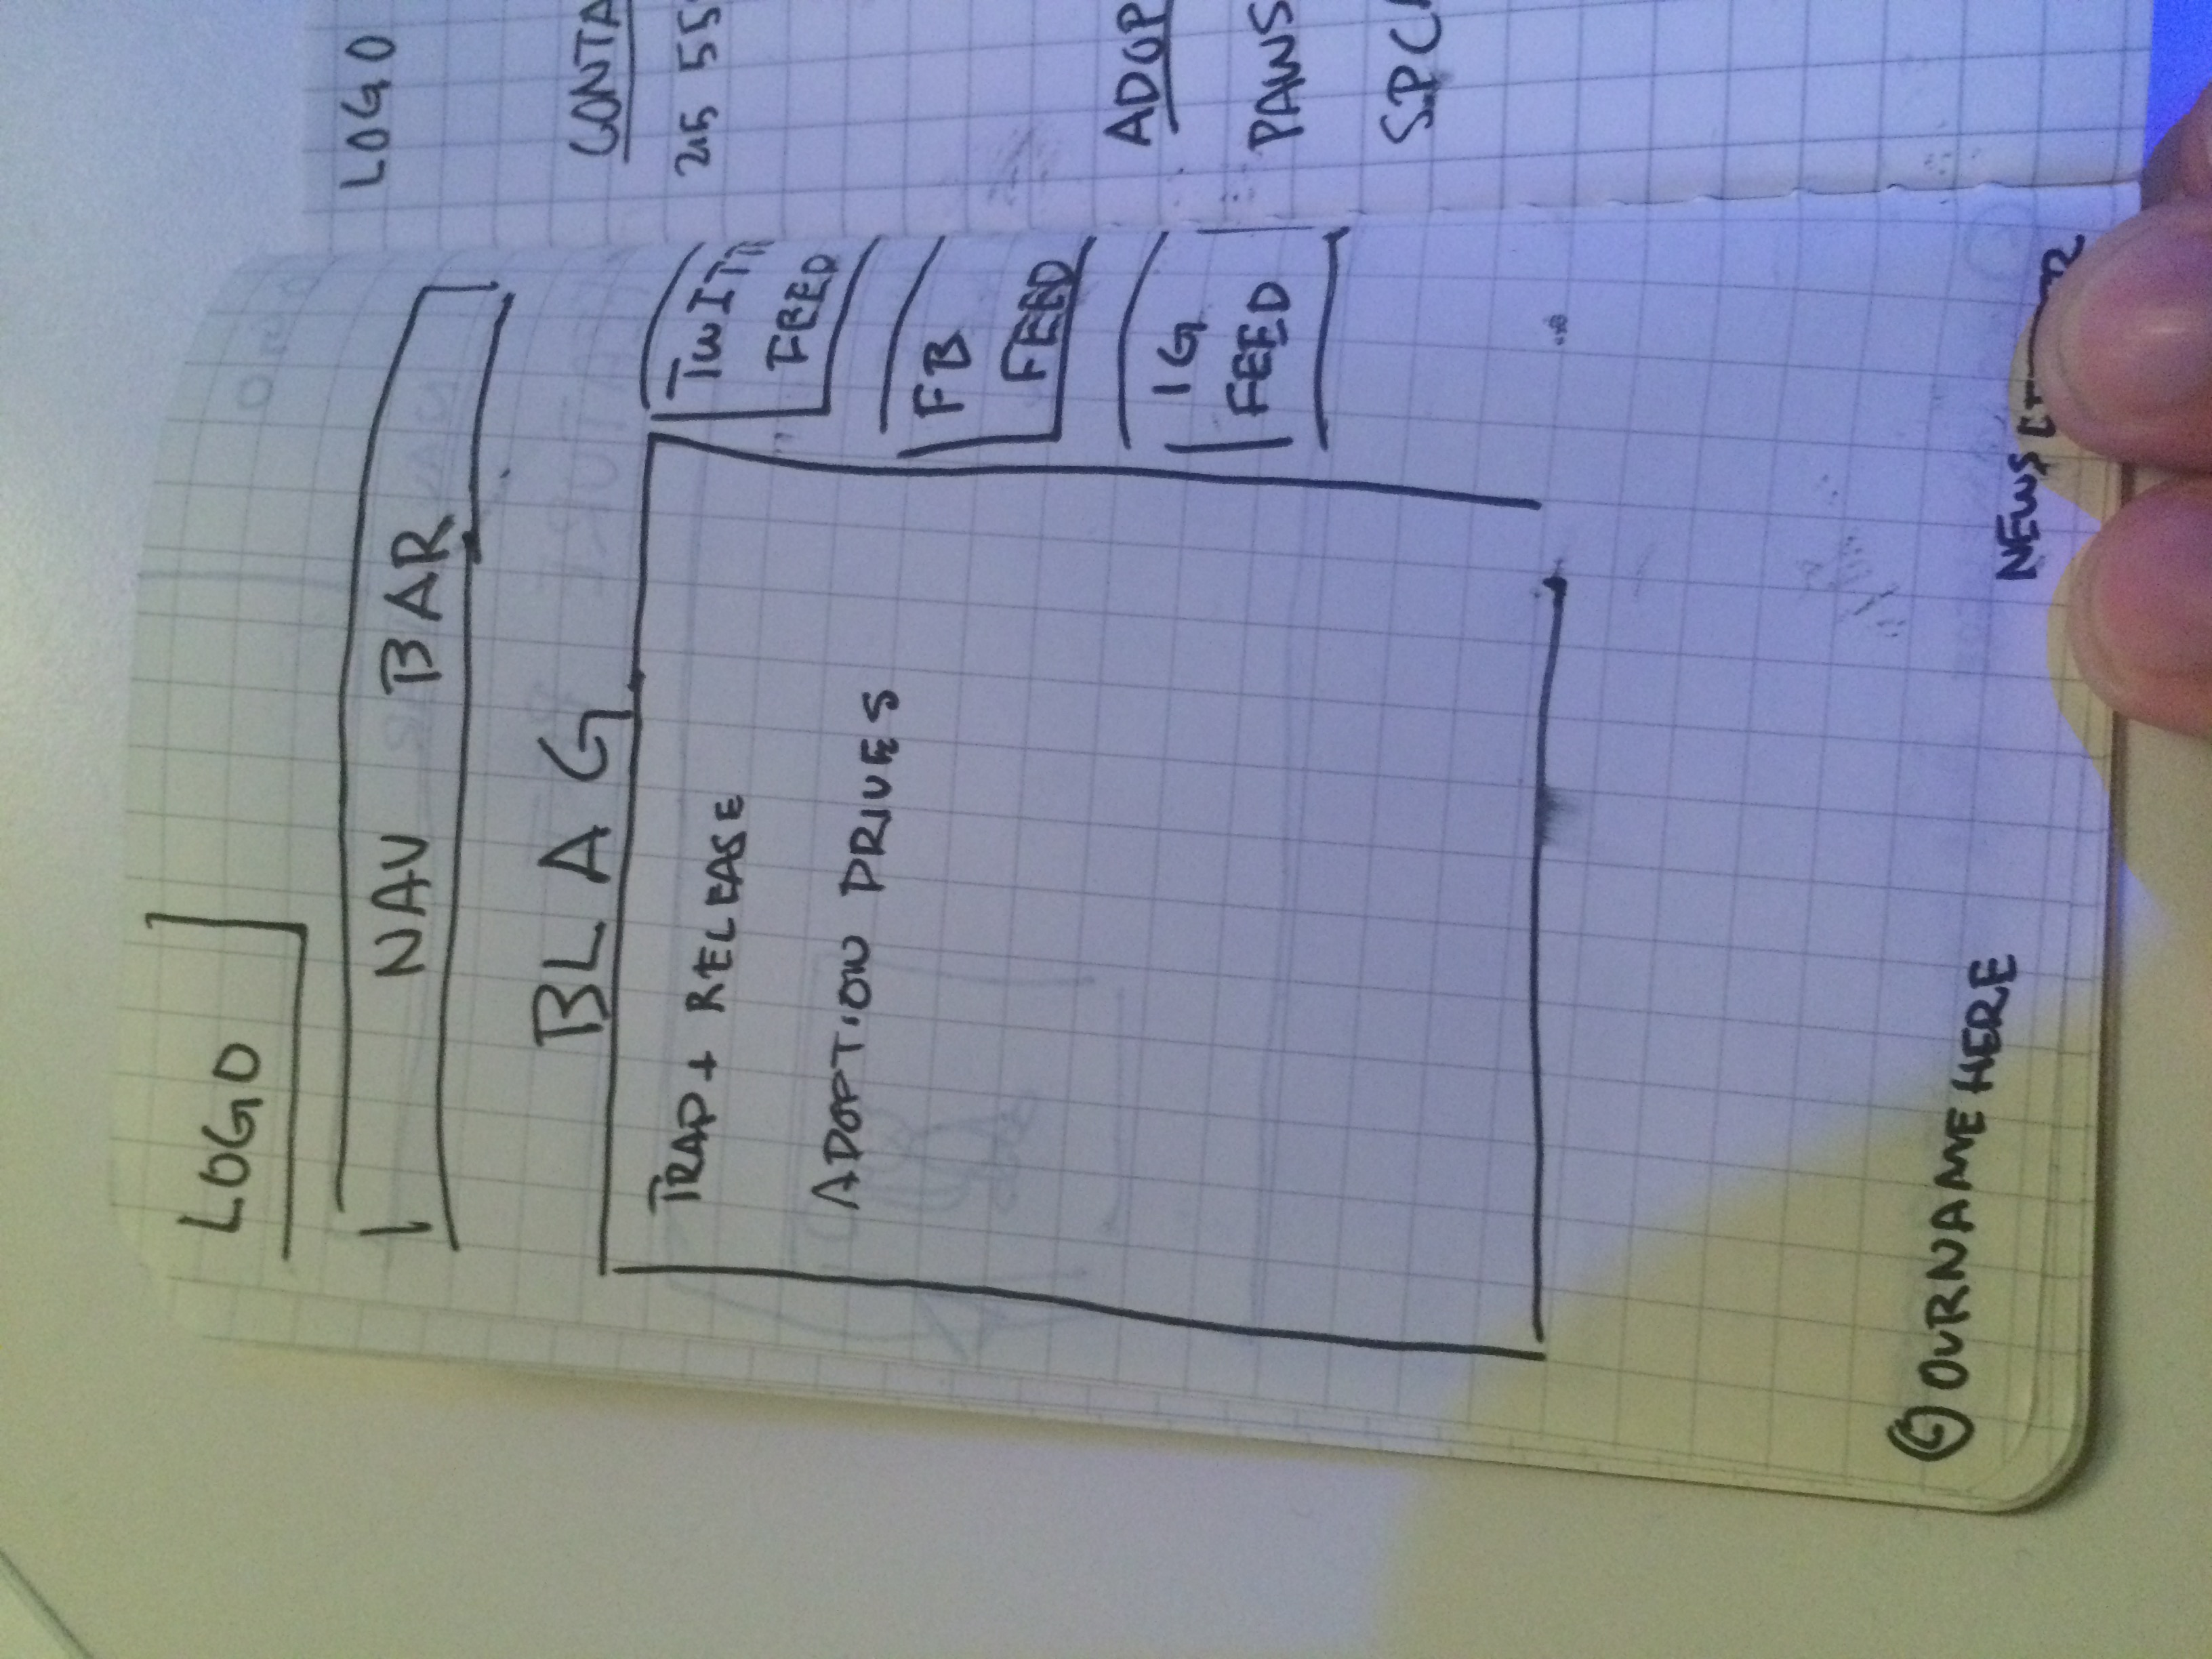 LOGO
NAV BAR
BLAG
TRAP + RELEASE
ADOPTION DRIVES
TWITT
FEED
FB
FEED
IG
FEED
© OUR NAME HERE
NEWS
LOGO
CONTA
215 55
ADOP
PAWS
SPCA